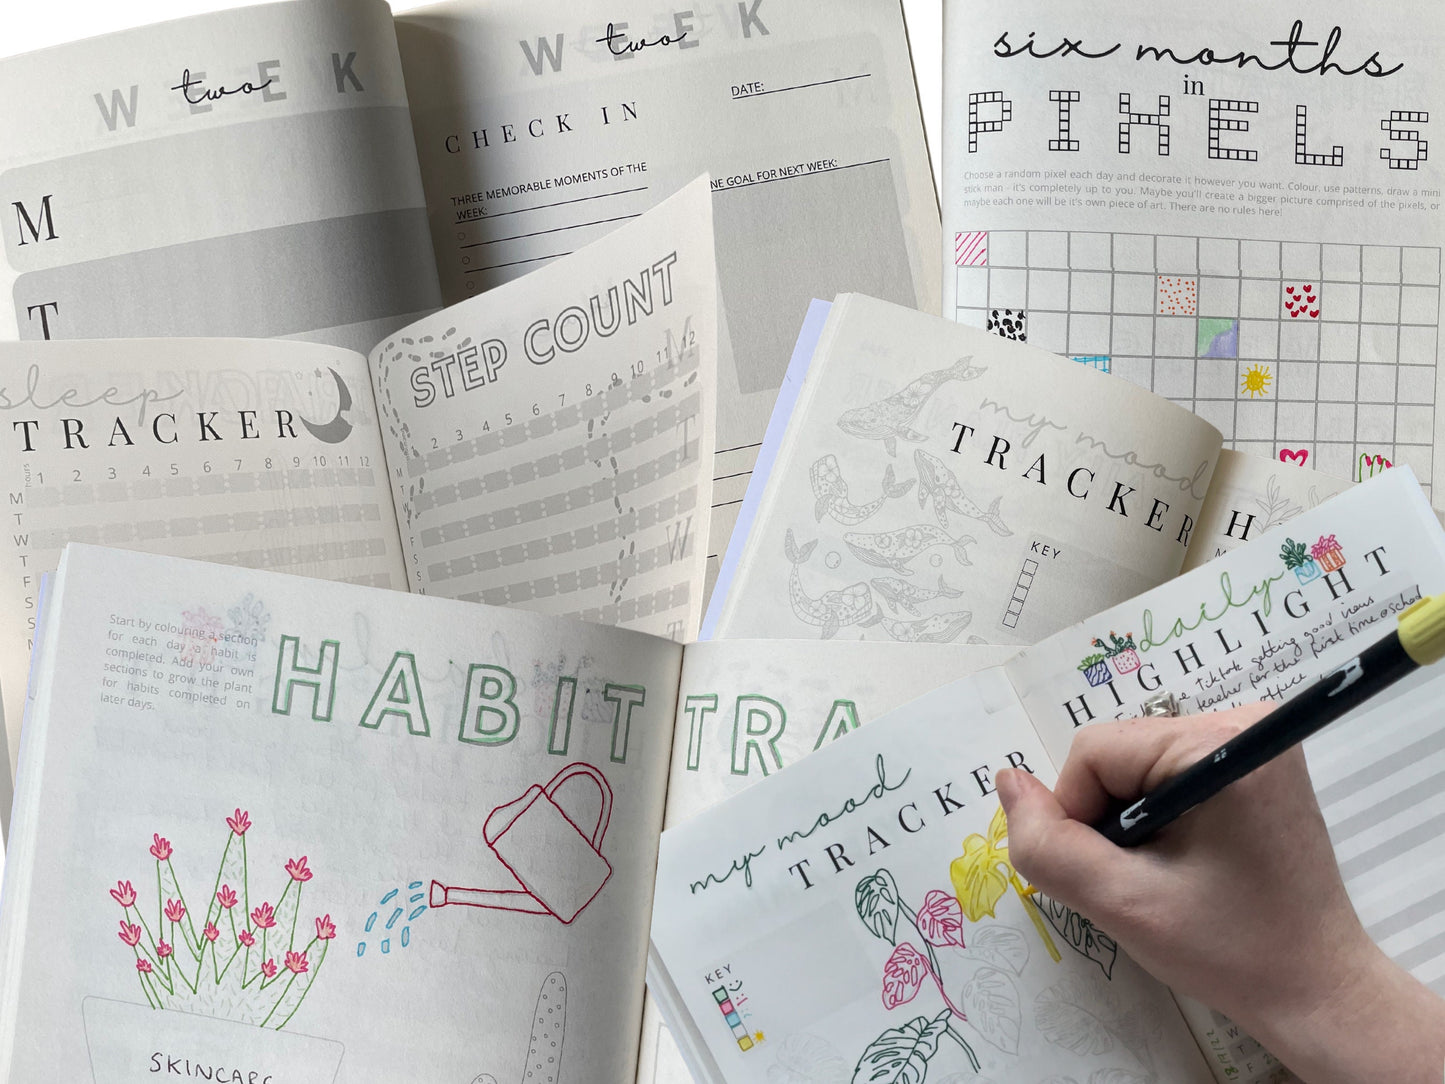 WEEK
two
M
T
WEEK
two
CHECK IN
DATE:
THREE MEMORABLE MOMENTS OF THE
WEEK:
NE GOAL FOR NEXT WEEK:
six months
in
PIXELS
Choose a random pixel each day and decorate it however you want. Colour, use patterns, draw a mini
stick man - it's completely up to you. Maybe you'll create a bigger picture comprised of the pixels, or
maybe each one will be it's own piece of art. There are no rules here!
sleep
TRACKER
hours
1 2 3 4 5 6 7 8 9 10 11 12
M
T
W
T
F
S
S
STEP COUNT
1 2 3 4 5 6 7 8 9 10 11 12
M
T
W
T
F
S
S
M
my mood
TRACKER
KEY
H
Start by colouring a section
for each day a habit is
completed. Add your own
sections to grow the plant
for habits completed on
later days.
HABIT TRA
SKINCARE
my mood
TRACKER
KEY
daily
HIGHLIGHT
Tiktok getting good views
teacher for the first time @ school
office
W
T
F